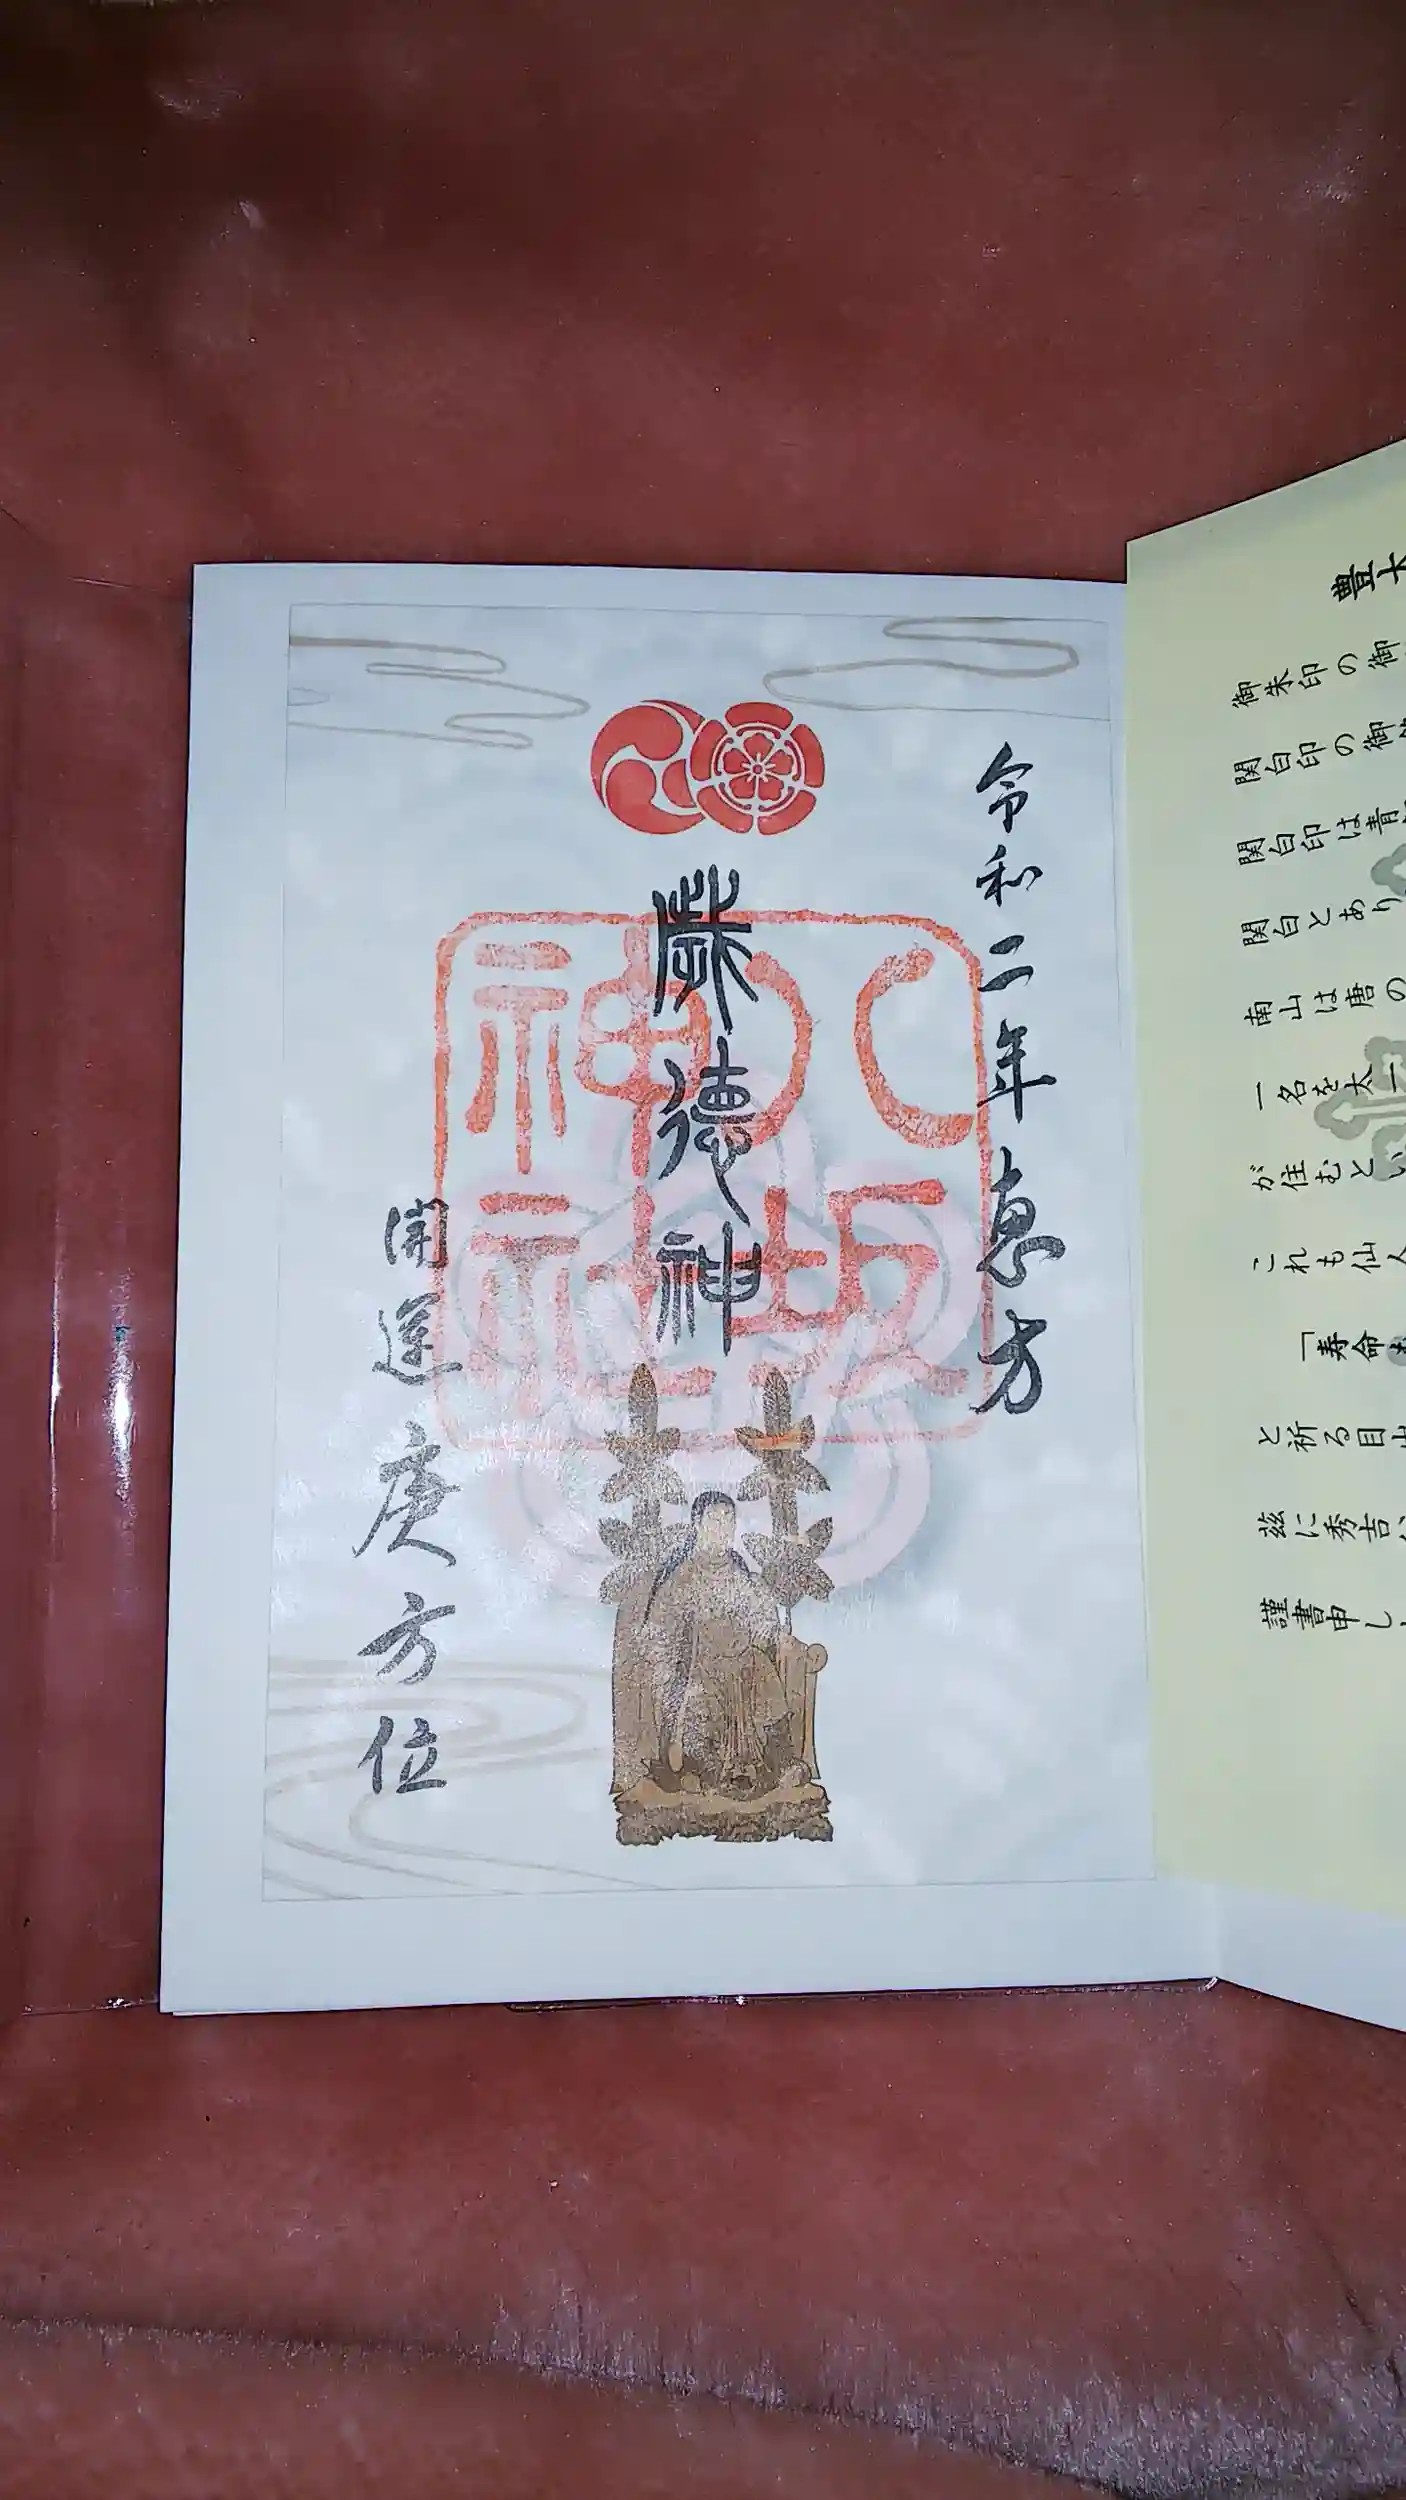 令和二年恵方
歳徳神
開運庚方位
八坂
神社
豊
御朱印の御
関白印の御
関白印は青
関白とあり
南山は唐の
一名を太一
が住むとい
これも仙人
「寿命
と祈る目出
茲に秀吉
謹書申し